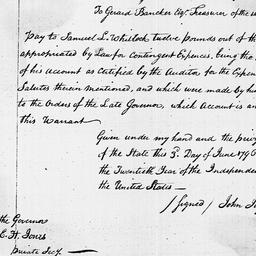 To Gerard Bancker Esqr. Treasurer of the
Pay to Samuel L. Whitlock twelve pounds out of th
appropriated by Law for Contingent Expences, being the
of his Account as Certified by the Auditor, for the Expen
Salutes therein mentioned, and which were made by
to the Orders of the Late Governor, which Account is an
this Warrant
Given under my hand and the priv
of the State this 3d. Day of June 1796
the Twentieth Year of the Independen
the United States —
/Signed/ John
the Governor
C. H. Jones
private Secy.